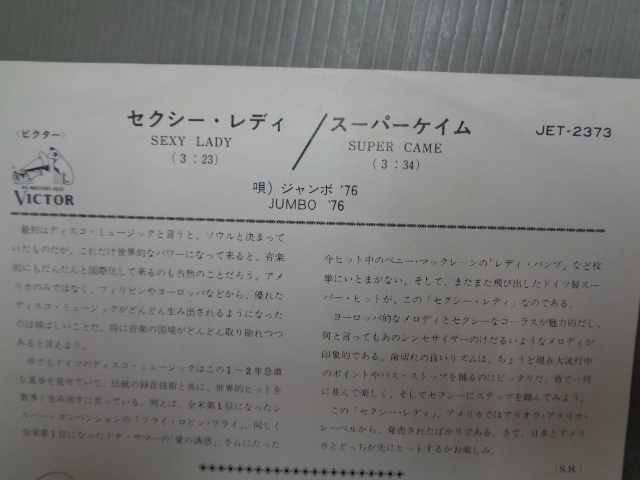 セクシー・レディ / スーパーケイム JET-2373
SEXY LADY SUPER CAME
(3:23) (3:34)
〈ビクター〉
"HIS MASTER'S VOICE"
VICTOR
唄) ジャンボ '76
JUMBO '76
最初はディスコ・ミュージックと言うと、ソウルと決まって
いたものだが、これだけ世界的なパワーになって来ると、音楽
的にもだんだんと国際化して来るのも当然のことだろう。アメ
リカのみではなく、フィリピンやヨーロッパなどから、優れた
ディスコ・ミュージックがどんどん生み出されるようになった
のは嬉しいことだ。将に音楽の国境がどんどん取り除れつつ
あると言えよう。
中でもドイツのディスコ・ミュージックはこの1〜2年急激
な進歩を見せていて、伝統の録音技術と共に、世界的ヒットを
数多く生み出すに至っている。例えば、全米第1位になったシ
ルバー・コンベンションの「フライ・ロビン・フライ」、同じく
全米第1位になったドナ・サマーの「愛の誘惑」、さらにたった
今ヒット中のペニー・マックレーンの「レディ・バンプ」など枚
挙にいとまがない。そして、またまた飛び出したドイツ製スー
パー・ヒットが、この「セクシー・レディ」なのである。
ヨーロッパ的なメロディとセクシーなコーラスが魅力的だし、
何と言ってもあのシンセサイザーのけだるいようなメロディが
印象的である。歯切れの良いリズムは、ちょうど現在大流行中
のポイントやバス・ストップを踊るのにピッタリだ。皆で一列
に並んで楽しく、そしてセクシーにステップを踏んでみよう。
この「セクシー・レディ」、アメリカではアリオラ・アメリカ・
レーベルから、発売されたばかりである。さて、日本とアメリ
カとどっちが先にヒットするかお楽しみ。
(S.H.)